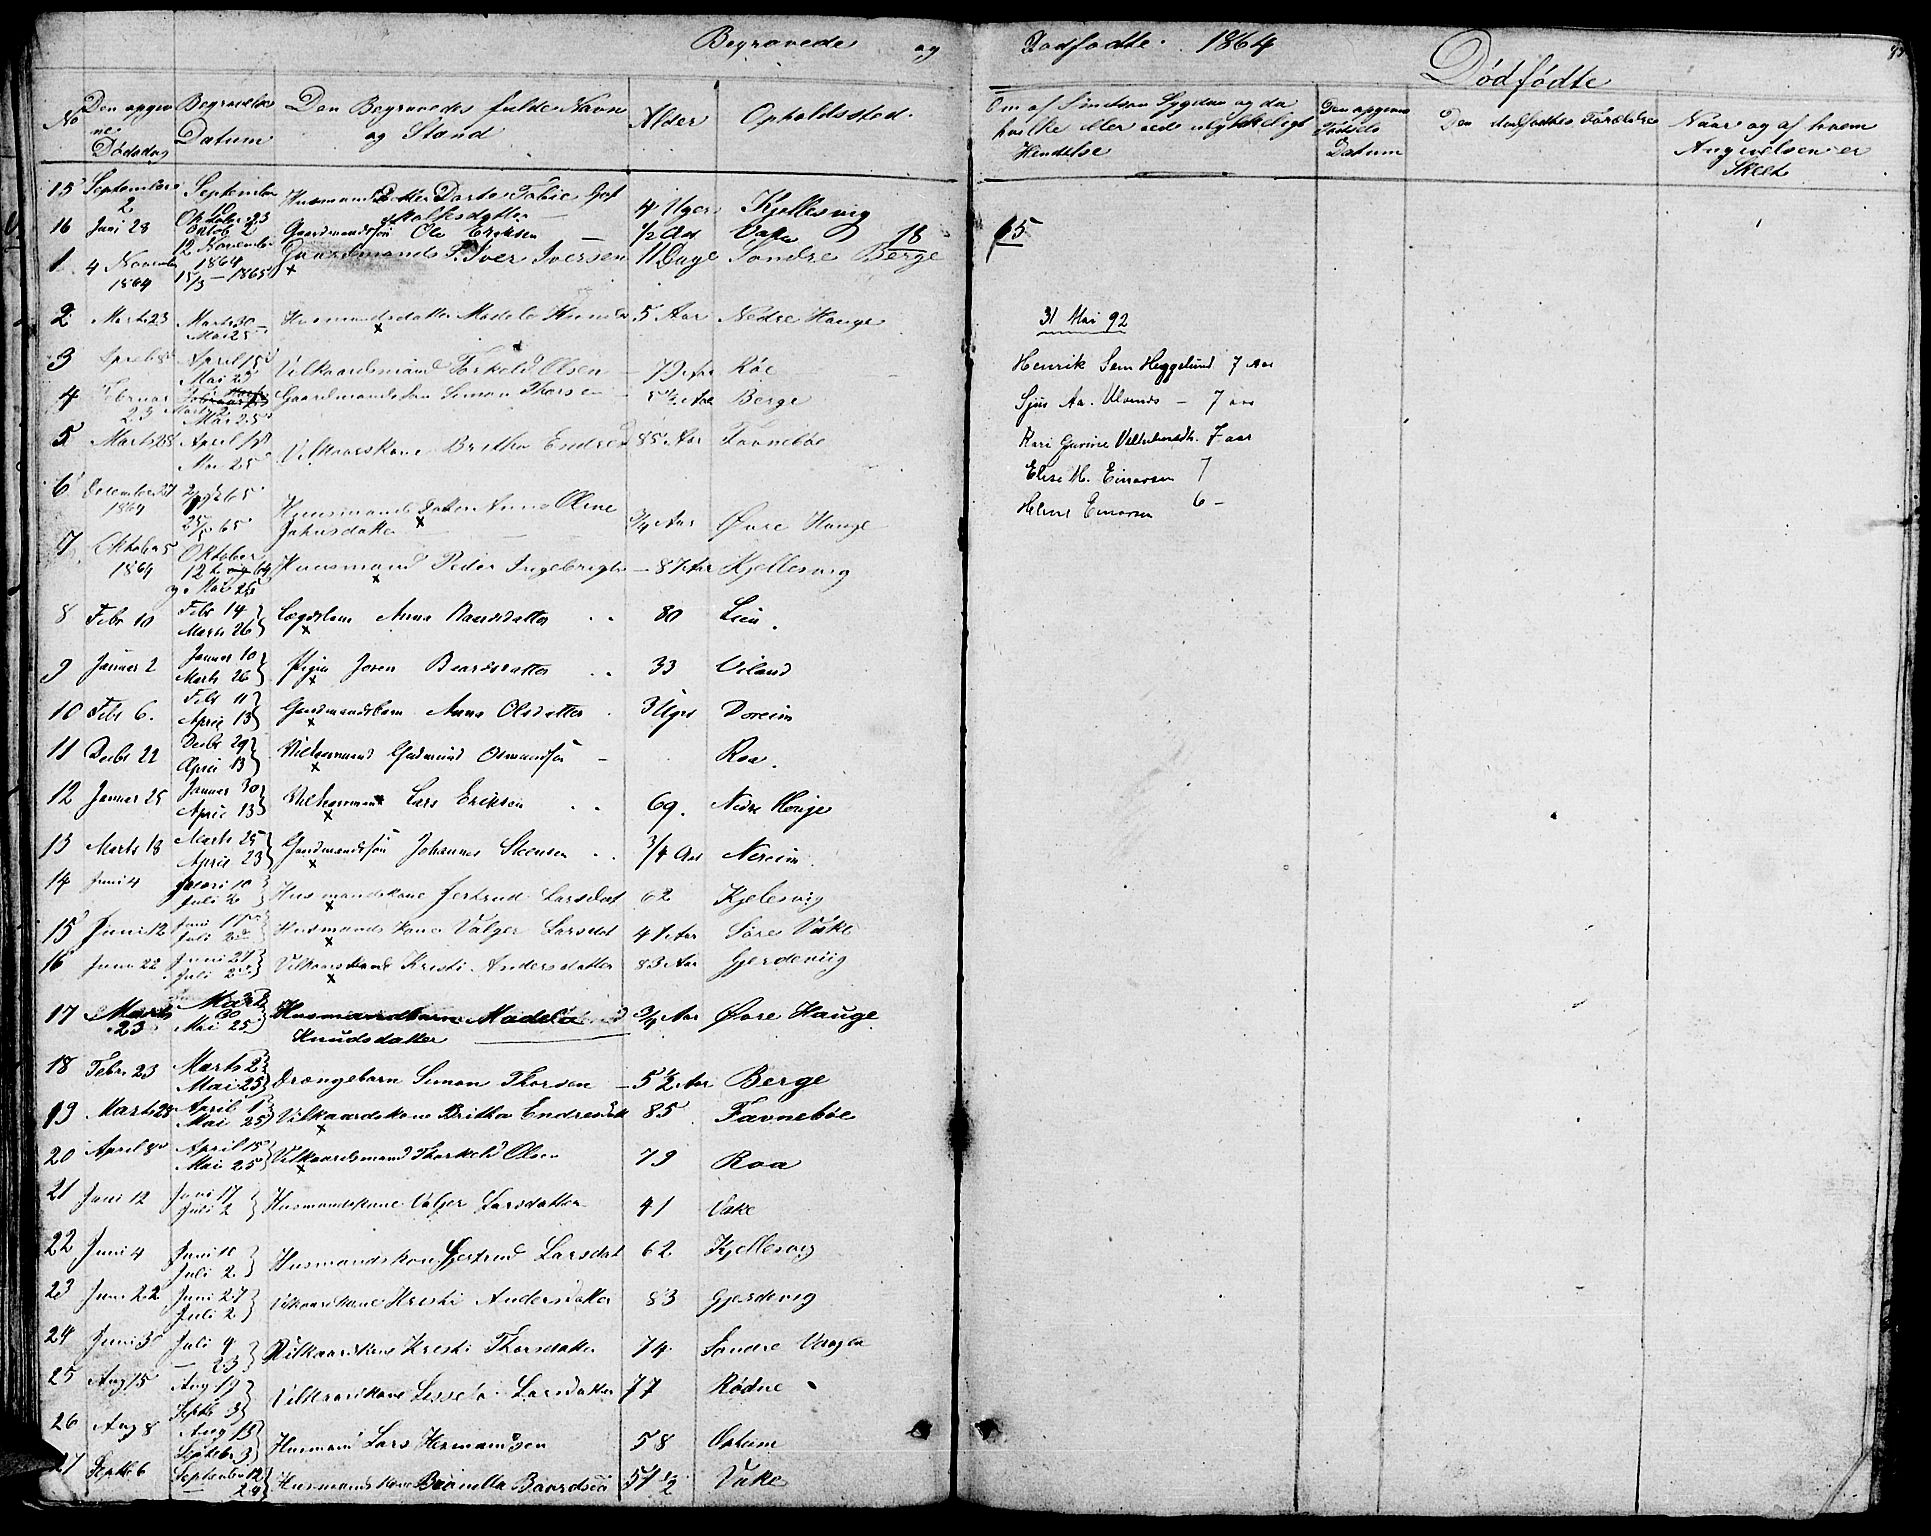 Begravede og Dødfødte. 1864
Dødfødte
No
Den opgivne Dødsdag
Begravelses Datum
Den Begravedes fulde Navn og Stand
Alder
Opholdssted.
Om af Smitsom Sygdom og da hvilke eller ved ulykkeligt Hendelse
Den opgivne Fødsels Datum
Den Dødfødtes Forældre
Naar og af hvem Angivelsen er Skeet
15 September 2 September Husmands Datter 4 Uger Kjellesvig
16 Juni 28 Oktob 2 Gaardmandssøn Ole Eriksen 1/2 Aar Vake
18 65
1 4 Novembr 1864 12 November 1864 15/3 - 1865 Gaardmands S. Iver Iversen 11 Dage Søndre Berge
2 Marts 23 Marts 30 Mai 25 Husmandsdatter Madele 5 Aar Nedre Hauge
3 April 8 April 15 Mai 25 Vilkaarsmand Torkeld Olsen 79 Aar Röe
4 Februar 23 Marts 2 Mai 25 Gaardmandssøn Simon Thorsen 5 1/2 Aar Berge
5 Marts 28 April 1 Mai 25 Vilkaarskone Britha Endresd 85 Aar Favneböe
6 December 27 1864 65 25/5 65 Huusmands Datter Anna Oline Johnsdatter 3/4 Aar Övre Hauge
7 Oktober 5 1864 Oktober 12 64 og Mai 25 Huusmand Peder Ingebrigts 87 Aar Kjellesvig
8 Febr 10 Febr 14 Marts 26 Lægdslem Anna Baardsdatter 80 Lien
9 Januar 2 Januar 10 Marts 26 Pigen Joren Baardsdatter 33 Øiland
10 Febr 6. Febr 11 April 13 Gaardmandsbarn Anna Olsdatter 3 Uger Doreim
11 Decbr 22 Decbr 29 April 13 Vilkaarmand Gudmund Osmundsøn Roa.
12 Januar 25 Januar 30 April 13 Vilkaarmand Lars Eriksen 69. Nedre Houge
13 Marts 18 Marts 25 April 23 Gaardmandssøn Johannes Steensen 3/4 Aar Nereim
14 Juni 4 Juni 10 Juli 2 Husmandskone Jertrud Larsdat 62 Kjelesvig
15 Juni 12 Juni 17 Juli 2 Husmands Kone Valger Larsdat 41 Aar Søre Vake
16 Juni 22 Juni 27 Juli 2 Vilkaarskone Kristi Andersdatter 83 Aar Gjerdeviig
17 Marts 23 Marts 30 Mai 25 Husmandbarn Madela Knudsdatter 3/4 Aar Övre Hauge
18 Febr. 23 Marts 2 Mai 25 Drængebarn Simon Thorsen 5 1/2 Aar Berge
19 Marts 28 April 1 Mai 25 Vilkaardskone Britha Endresdk 85 Favneböe
20 April 8 April 15 Mai 25 Vilkaardsmand Thorkeld Olsen 79 Roa
21 Juni 12 Juni 17 Juli 2 Husmandskone Valger Larsdatter 41 Vake
22 Juni 4 Juni 10 Juli 2 Husmandskone Gjertrud Larsdat 62 Kjellesvig
23 Juni 22 Juni 27 Juli 2 Vilkaarskone Kristi Andersdatter 83 Gjerdevig
24 Juni 30 Juli 4 - 23 Vilkaardskone Kristi Thorsdatter 74 Søndre
25 Aug 15 Aug 19 Septbr 3 Vilkaarskone Lisse Larsdatter 77 Rødne
26 Aug 8 Aug 13 Septbr 3 Husmand Lars Hermandsen 58 Opheim
27 Septbr 6 September 12 - 24 Husmandskone Baardsdr 57 1/2 Vake
31 Mai 92
Henrik Sem Heggelund 7 Aar
Sjur Aa. Ulvund - 7 aar
Kari Gurine 7 aar
Elise M. Einarsen 7
Helene Einarsen 6 -